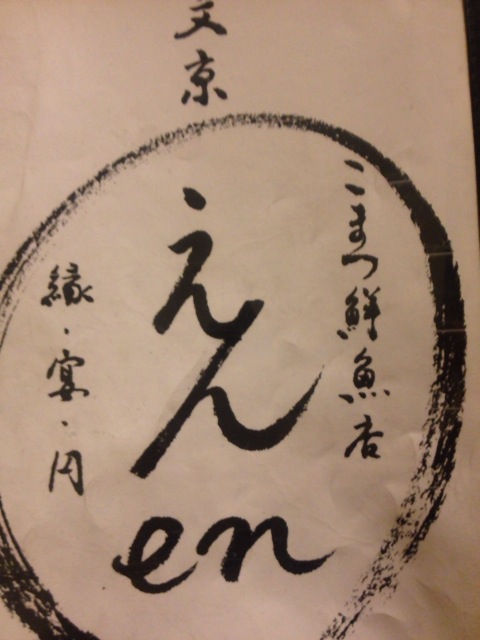 文京
こまつ鮮魚店
えん
en
縁・宴・円